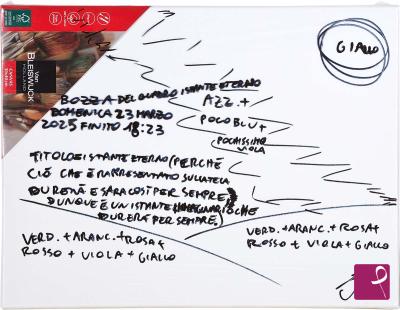 Van
BLEISWIJCK
HOLLAND
GIALLO
BOZZA DEL QUADRO ISTANTE ETERNO
DOMENICA 23 MARZO
2025 FINITO 18:23
AZZ. +
POCO BLU +
POCHISSIMO
VIOLA
TITOLO ISTANTE ETERNO (PERCHÉ
CIÒ CHE È RAPPRESENTATO SULLA TELA
DURERÀ E SARÀ COSÌ PER SEMPRE)
DUNQUE È UN ISTANTE IMMAGINARIO CHE
DURERÀ PER SEMPRE.)
VERD. + ARANC. + ROSA +
ROSSO + VIOLA + GIALLO
VERD. + ARANC. + ROSA +
ROSSO + VIOLA + GIALLO